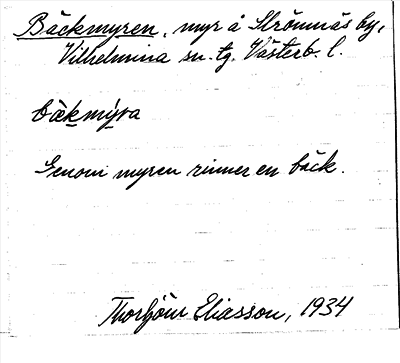 Bäckmyren, myr å Strömnäs by,
Vilhelmina sn. tg. Västerb. l.
bækmýra
Genom myren rinner en bäck.
Thorbjörn Eliasson, 1934